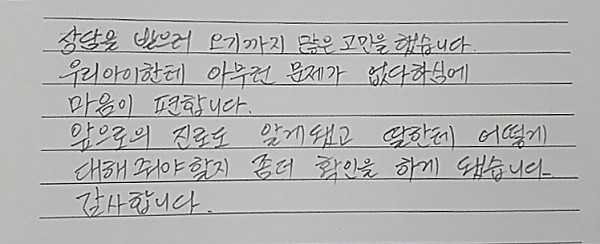 상담을 받으러 오기까지 많은 고민을 했습니다.
우리아이한테 아무런 문제가 없다하심에
마음이 편합니다.
앞으로의 진로도 알게됐고 딸한테 어떻게
대해줘야할지 좀더 확인을 하게 됐습니다.
감사합니다.